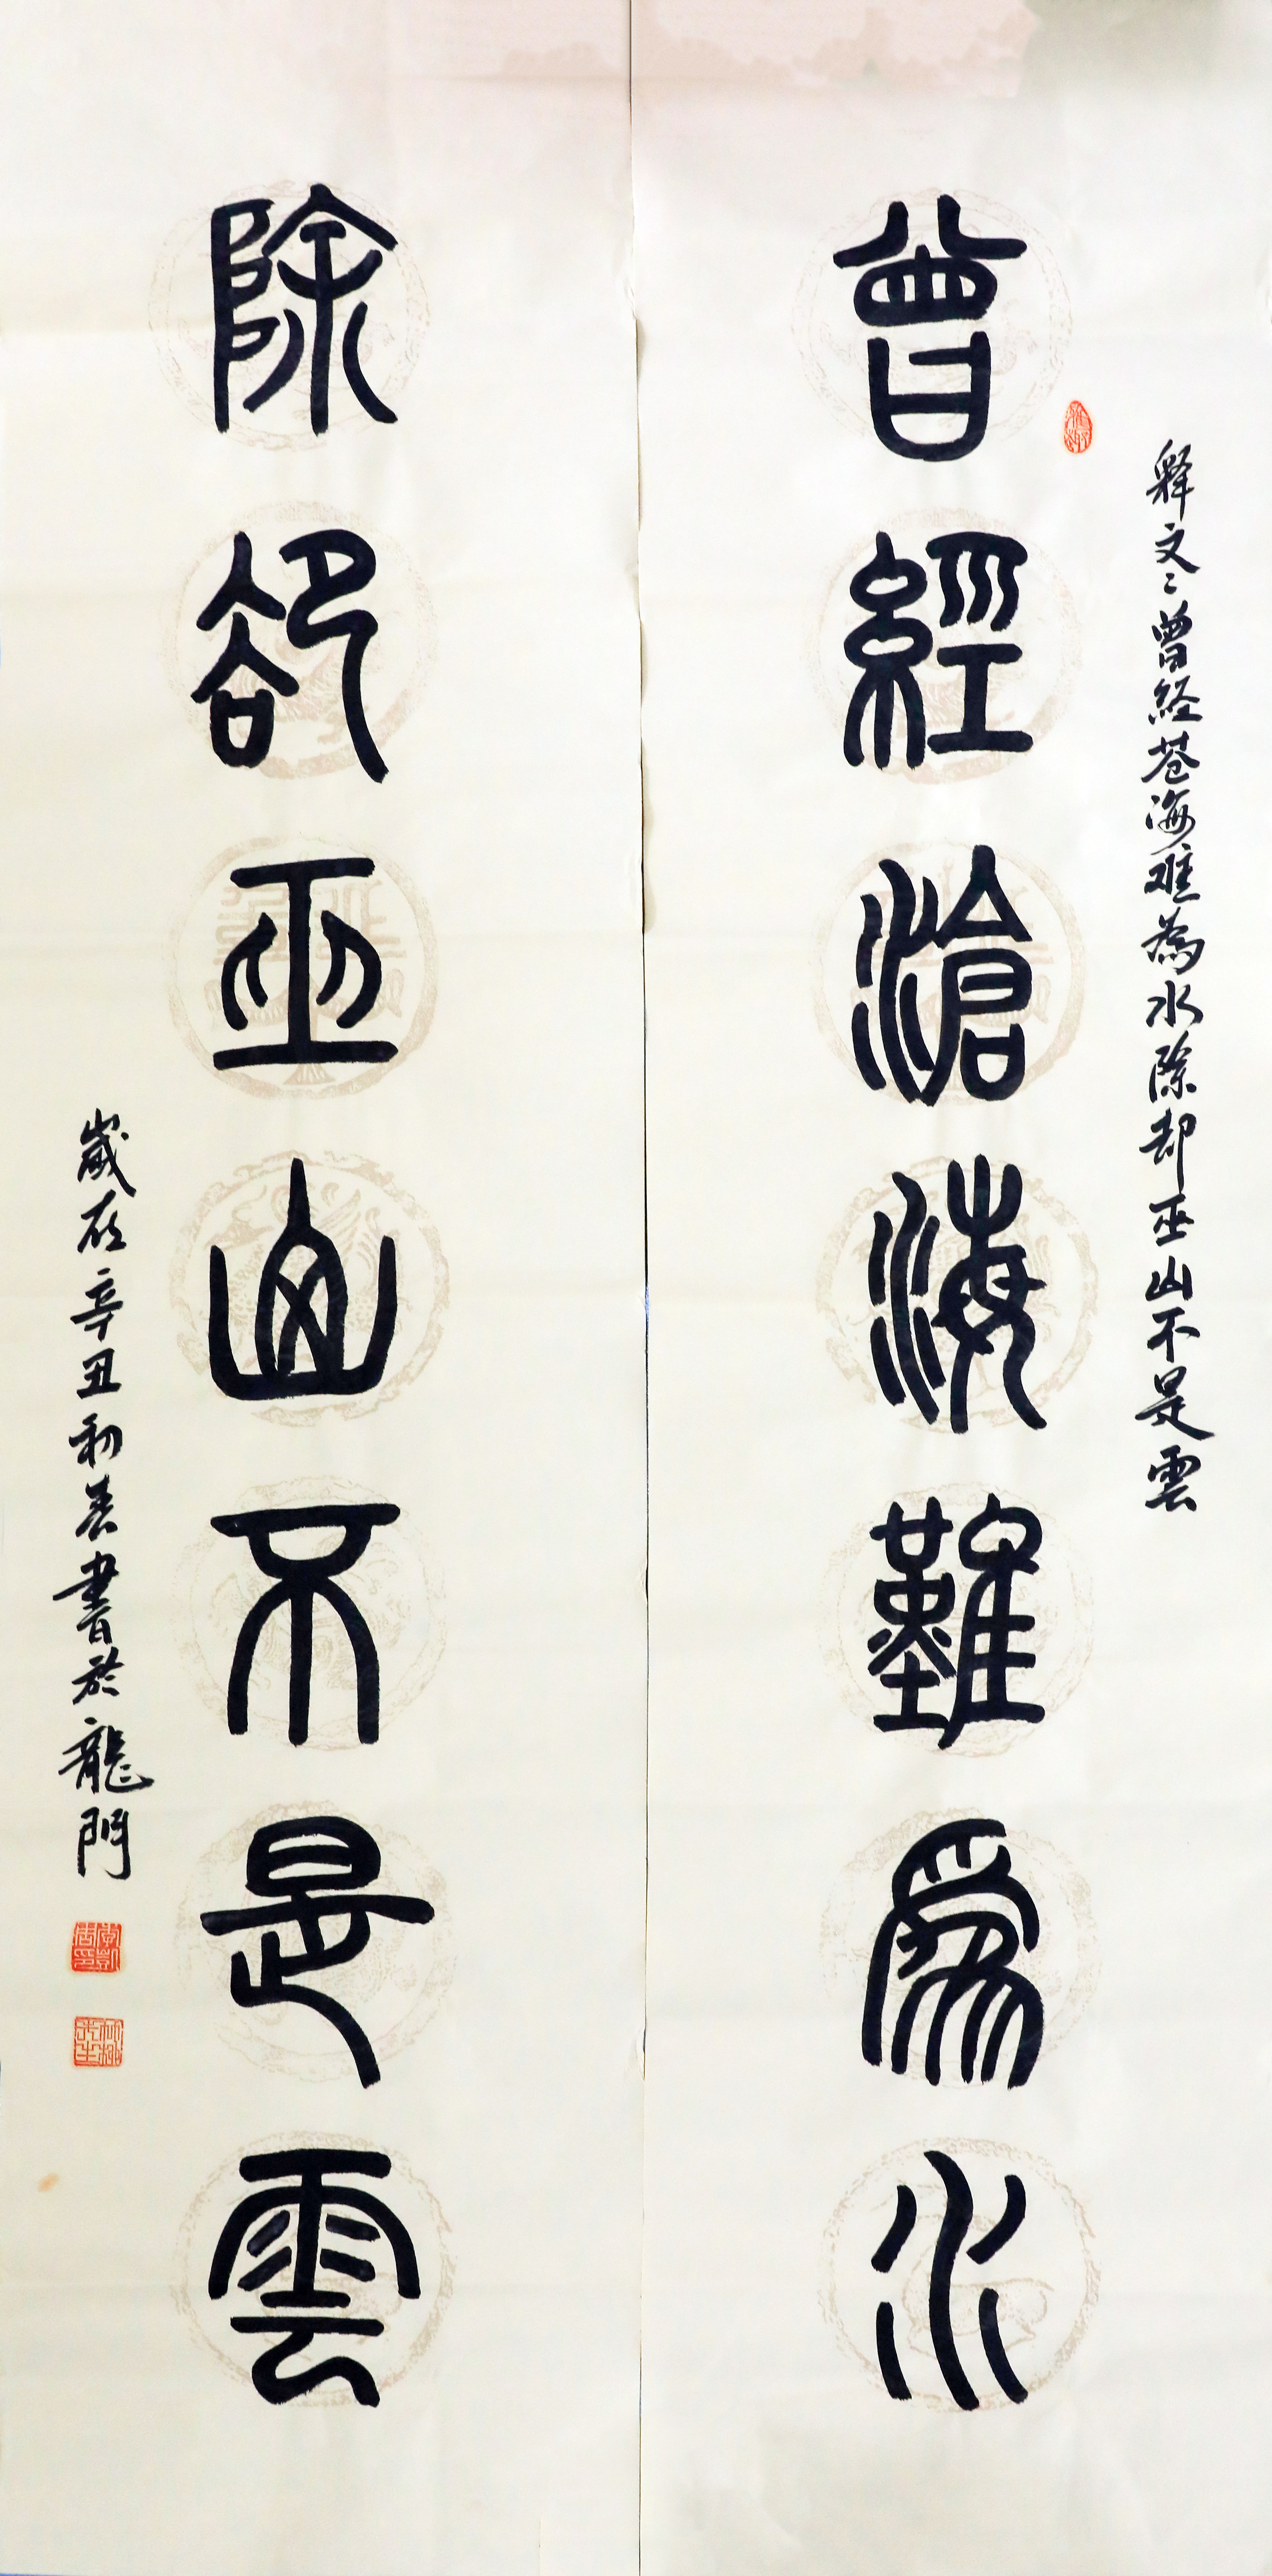 释文：曾经苍海难為水除却巫山不是雲
曾經滄海難爲水
除卻巫山不是雲
歲在辛丑初春書於龍門